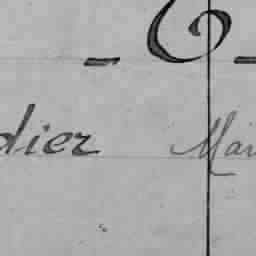 - 6 -
dier Mar